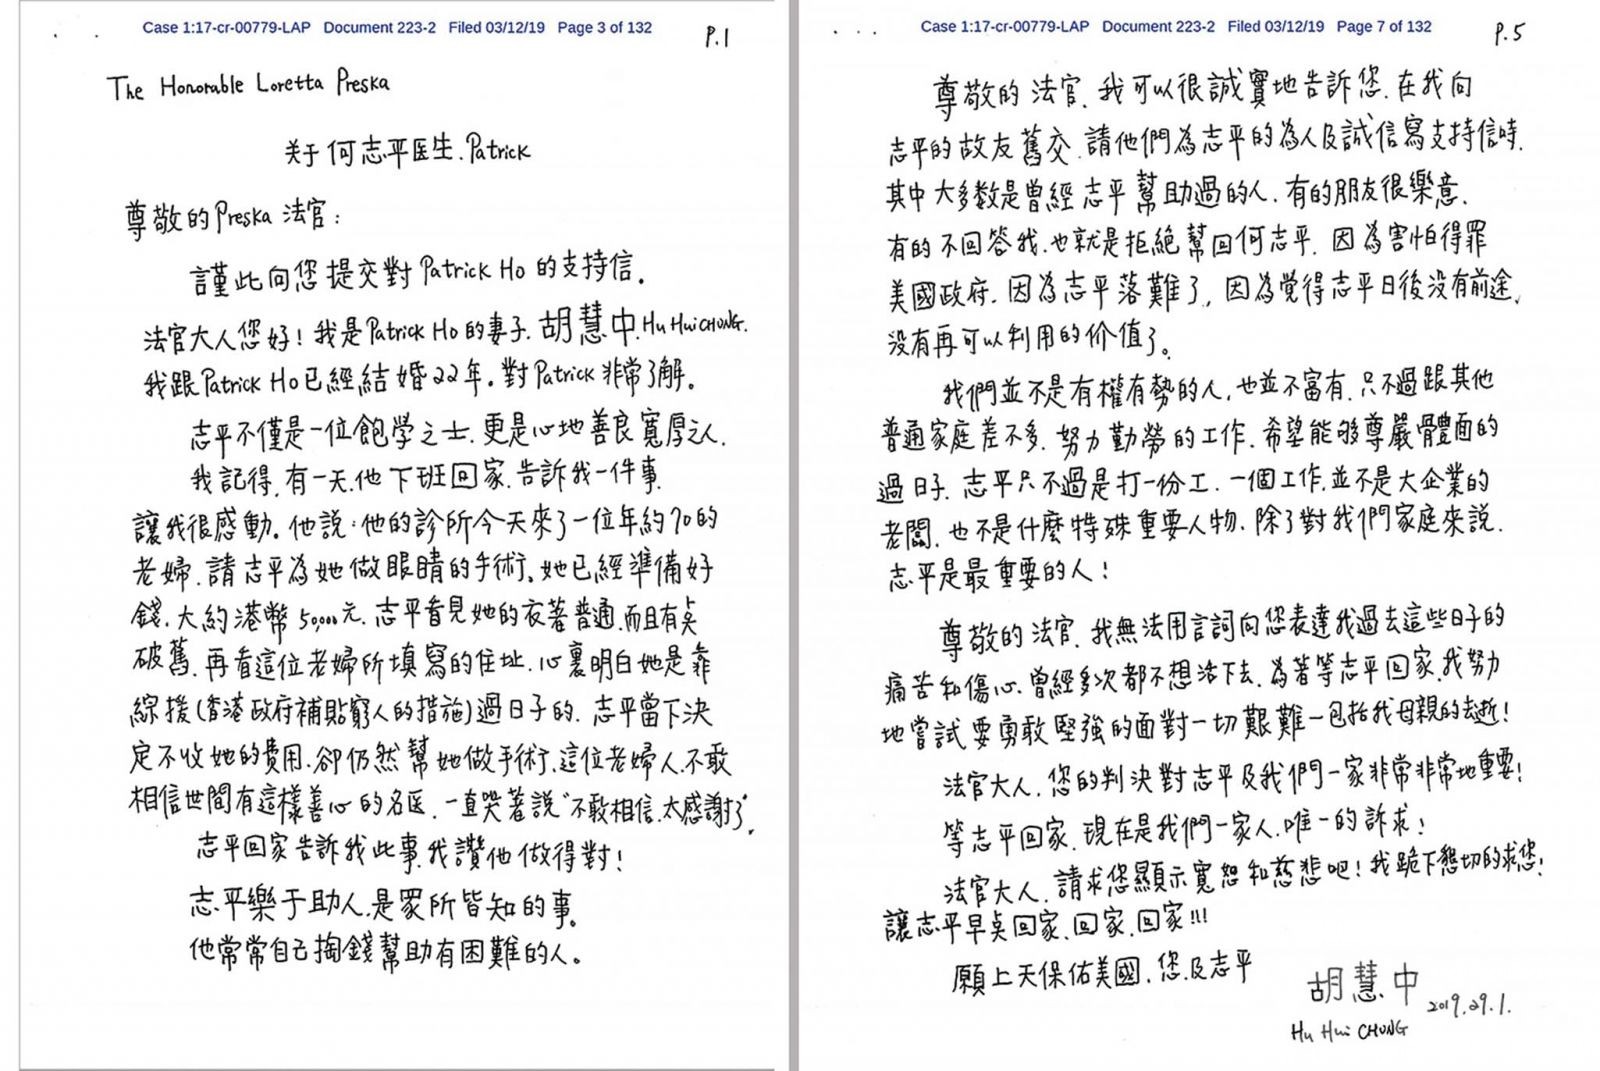 Case 1:17-cr-00779-LAP Document 223-2 Filed 03/12/19 Page 3 of 132
P.1
The Honorable Loretta Preska
关于何志平医生.Patrick
尊敬的Preska法官:
謹此向您提交對Patrick Ho的支持信。
法官大人您好!我是Patrick Ho的妻子.胡慧中.Hu Hui CHUNG.
我跟Patrick Ho已經結婚22年。對Patrick非常了解。
志平不僅是一位飽学之士.更是心地善良寬厚之人.
我記得.有一天.他下班回家.告訴我一件事.
讓我很感動。他說:他的診所今天來了一位年約70的
老婦.請志平為她做眼睛的手術。她已經準備好
錢.大約港幣50,000元.志平看見她的衣著普通.而且有点
破舊.再看這位老婦所填寫的住址.心裏明白她是靠
綜援(香港政府補貼窮人的措施)過日子的.志平當下決
定不收她的費用.卻仍然幫她做手術.這位老婦人.不敢
相信世間有這樣善心的名医.一直哭著說"不敢相信.太感謝了".
志平回家告訴我此事.我讚他做得對!
志平樂于助人.是眾所皆知的事。
他常常自己掏錢幫助有困難的人。
Case 1:17-cr-00779-LAP Document 223-2 Filed 03/12/19 Page 7 of 132
P.5
尊敬的法官.我可以很誠實地告訴您.在我向
志平的故友舊交.請他們為志平的為人及誠信寫支持信時.
其中大多数是曾經志平幫助過的人.有的朋友很樂意.
有的不回答我.也就是拒絕幫回何志平.因為害怕得罪
美國政府.因為志平落難了,因為覺得志平日後没有前途,
没有再可以利用的价值了。
我們並不是有權有勢的人,也並不富有.只不過跟其他
普通家庭差不多.努力勤勞的工作.希望能够尊嚴體面的
過日子.志平只不過是打一份工.一個工作.並不是大企業的
老闆.也不是什麼特殊重要人物.除了對我們家庭來說.
志平是最重要的人!
尊敬的法官.我無法用言詞向您表達我過去這些日子的
痛苦和傷心.曾經多次都不想活下去.為著等志平回家.我努力
地嘗試要勇敢堅強的面對一切艱難—包括我母親的去逝!
法官大人.您的判決對志平及我們一家非常非常地重要!
等志平回家.現在是我們一家人.唯一的訴求!
法官大人.請求您顯示寬恕和慈悲吧!我跪下懇切的求您!
讓志平早点回家.回家.回家!!!
願上天保佑美國.您.及志平
胡慧中 2019.29.1.
Hu Hui CHUNG